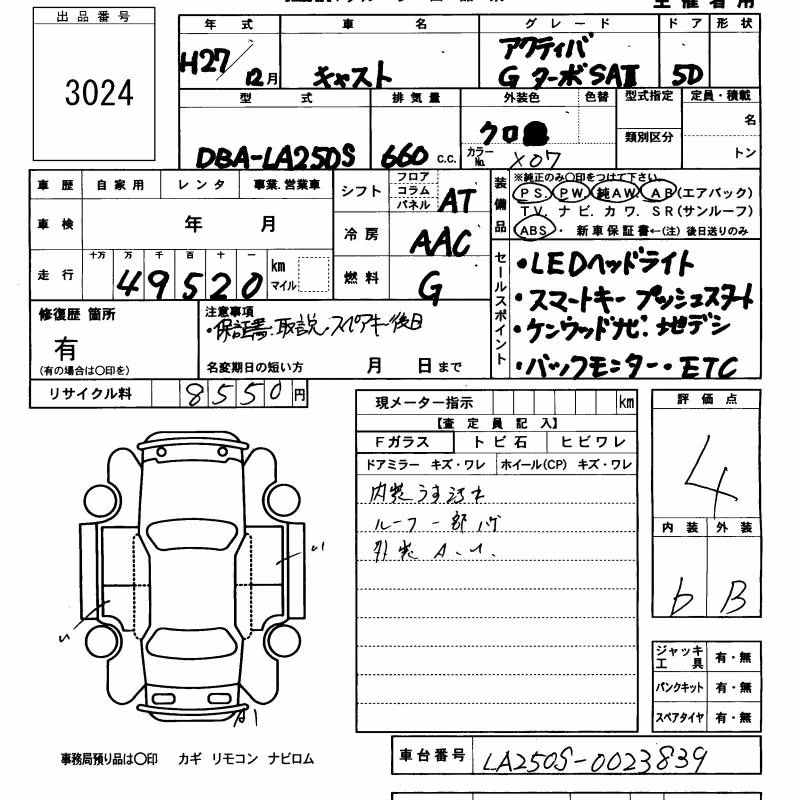 主催者用
出品番号
3024
年式 車名 グレード ドア 形状
H27/12月 キャスト アクティバ G ターボSAⅡ 5D
型式 排気量 外装色 色替 型式指定 定員・積載
DBA-LA250S 660 c.c. クロ 類別区分 名
カラーNo. X07 トン
車歴 自家用 レンタ 事業.営業車
車検 年 月
走行 十万 万 千 百 十 一 km マイル
49520
シフト フロア コラム パネル AT
冷房 AAC
燃料 G
装備品 ※純正のみ○印をつけて下さい。
PS. PW. 純AW. AB(エアバック)
TV. ナビ. カワ. SR(サンルーフ)
ABS・ 新車保証書←(注) 後日送りのみ
セールスポイント
・LEDヘッドライト
・スマートキー プッシュスタート
・ケンウッドナビ・地デシ
・バックモニター・ETC
修復歴 箇所
有
(有の場合は○印を)
注意事項
・保証書.取説.スペアキー後日
名変期日の短い方 月 日まで
リサイクル料 8550円
現メーター指示 km
【査定員記入】
Fガラス トビ石 ヒビワレ
ドアミラー キズ・ワレ ホイール(CP) キズ・ワレ
内装うす汚れ
ルーフ一部ハゲ
外装 A.U.
評価点
4
内装 外装
b B
ジャッキ工具 有・無
パンクキット 有・無
スペアタイヤ 有・無
A1
事務局預り品は○印 カギ リモコン ナビロム
車台番号 LA250S-0023839